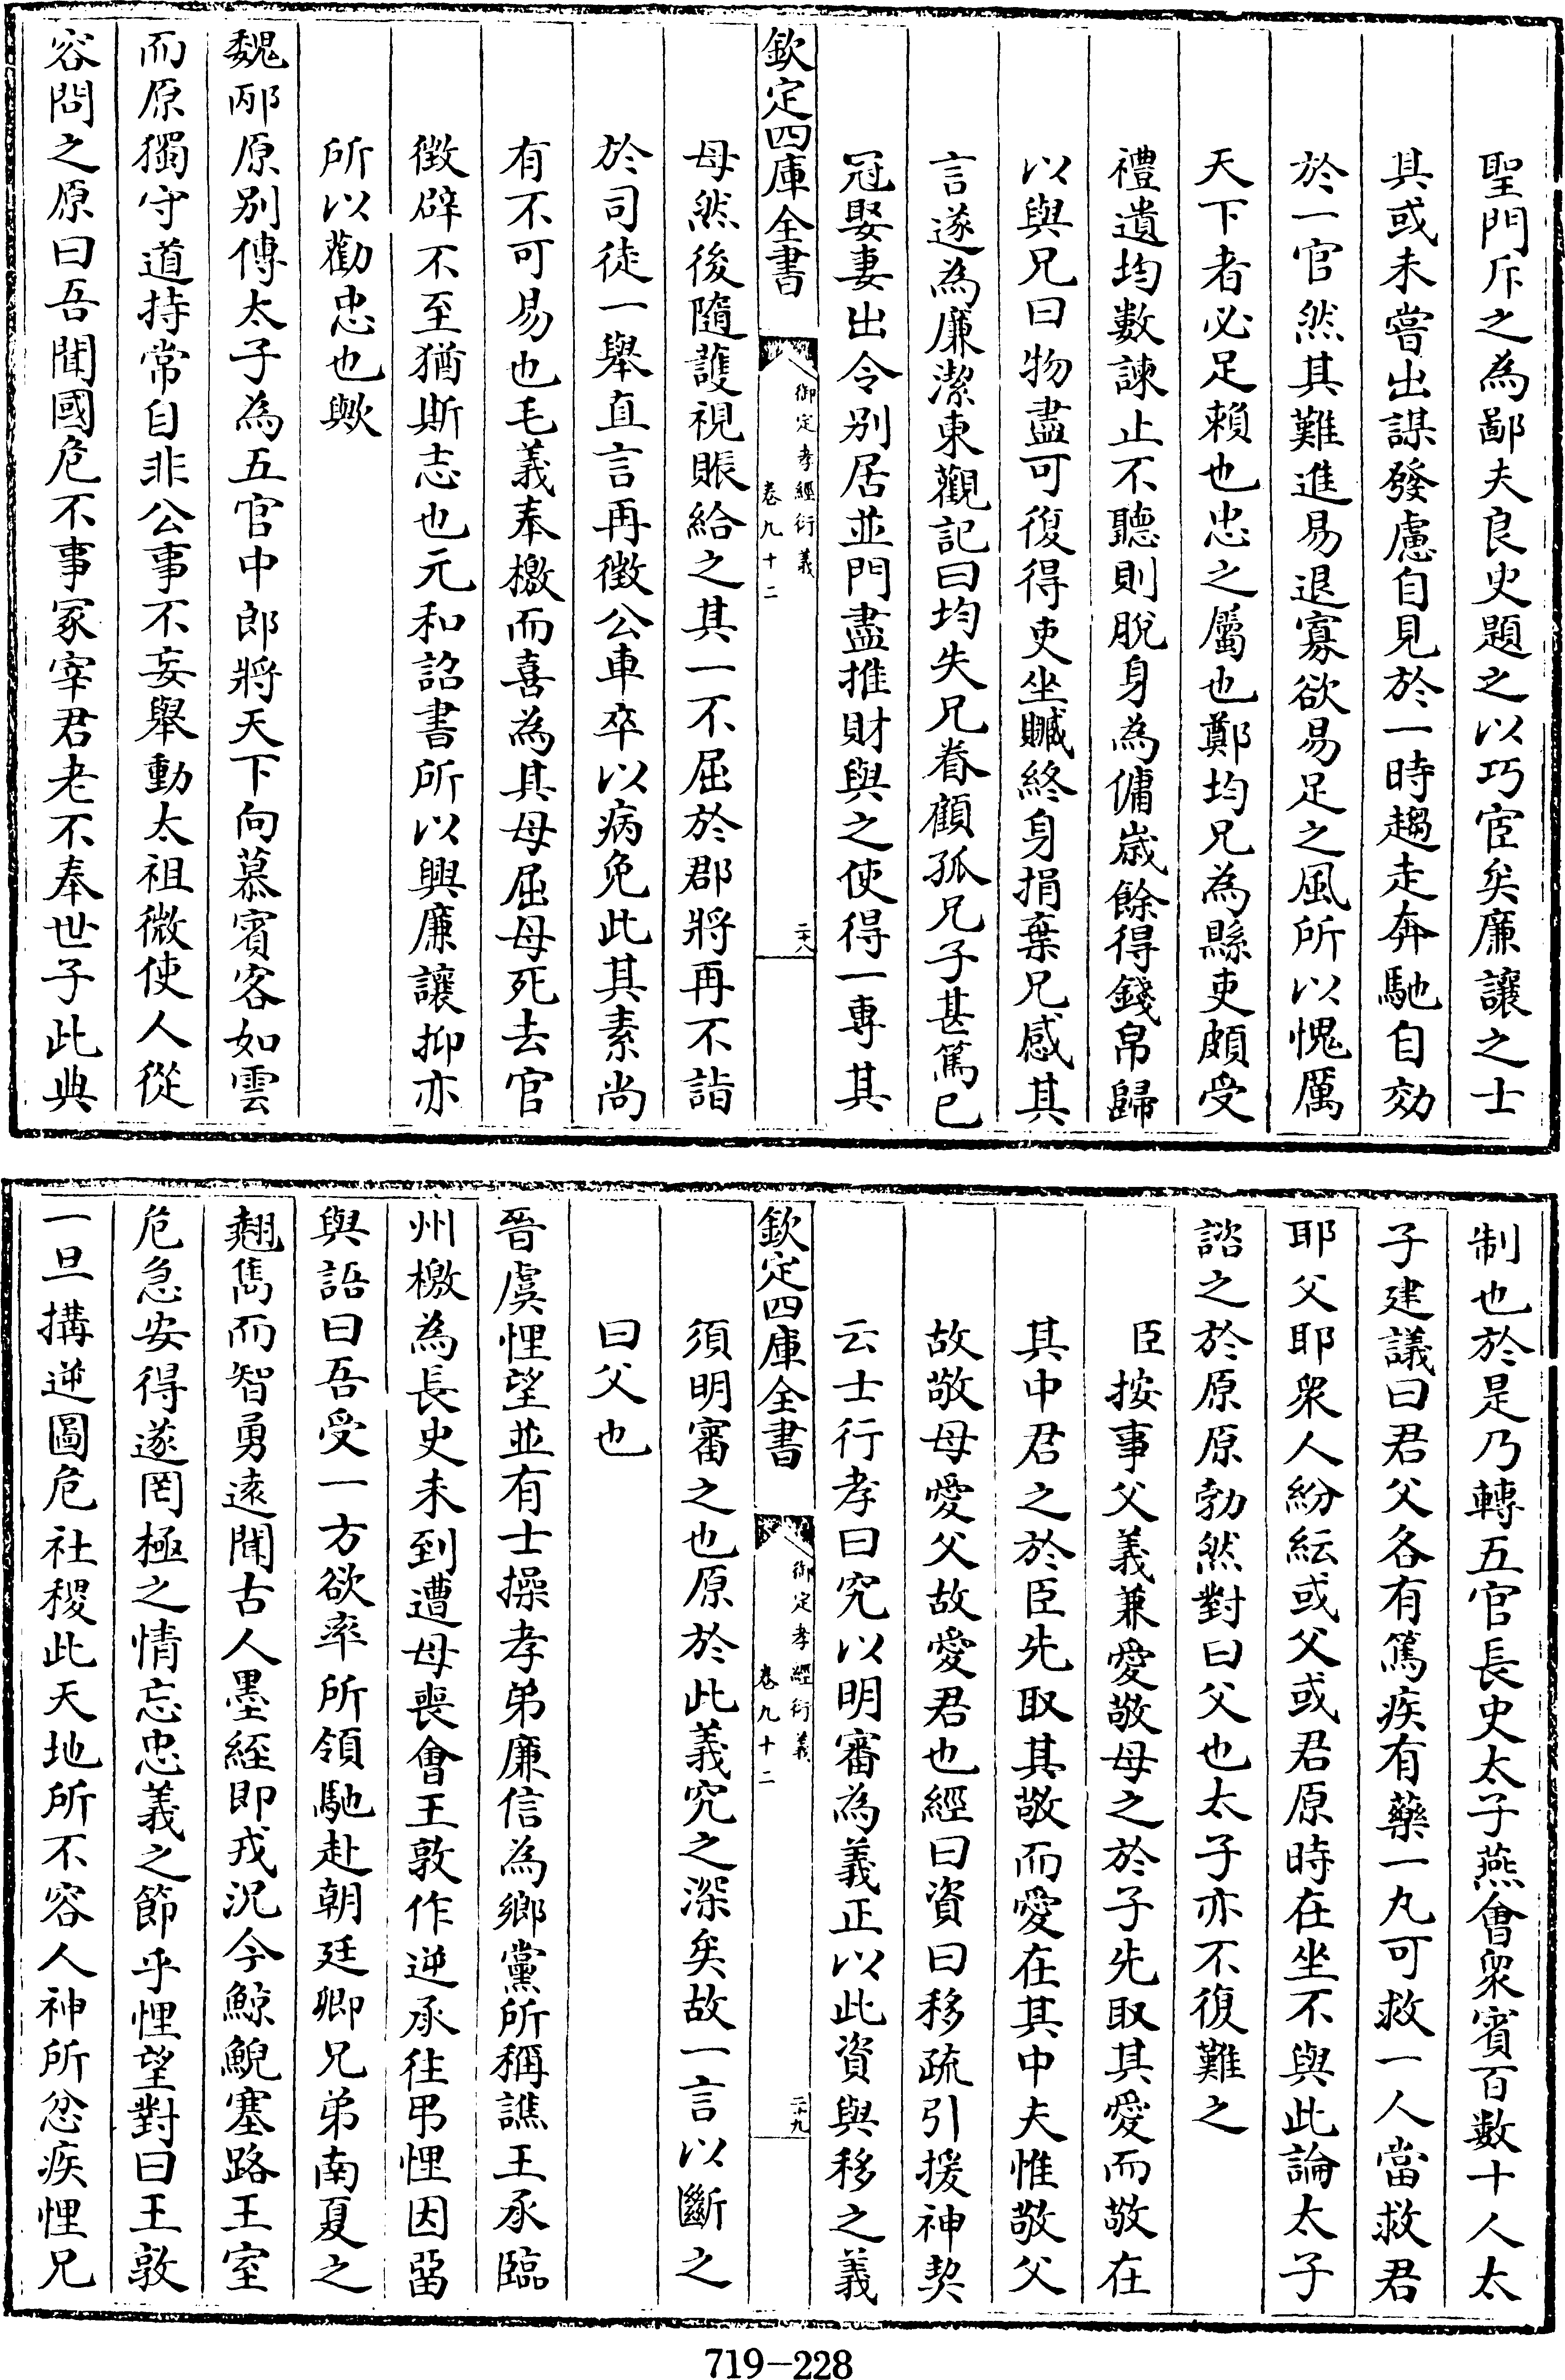 聖門斥之為鄙夫良史題之以巧宦矣廉讓之士
其或未嘗出謀發慮自見於一時趨走奔馳自効
於一官然其難進易退寡欲易足之風所以愧厲
天下者必足賴也忠之屬也鄭均兄為縣吏頗受
禮遺均數諫止不聽則脫身為傭歲餘得錢帛歸
以與兄曰物盡可復得吏坐贓終身捐棄兄感其
言遂為廉潔東觀記曰均失兄眷顧孤兄子甚篤已
冠娶妻出令别居並門盡推財與之使得一專其
欽定四庫全書
御定孝經衍義
卷九十二
二十八
母然後隨護視賬給之其一不屈於郡將再不詣
於司徒一舉直言再徵公車卒以病免此其素尚
有不可易也毛義奉檄而喜為其母屈母死去官
徵辟不至猶斯志也元和詔書所以興廉讓抑亦
所以勸忠也歟
魏邴原别傳太子為五官中郎將天下向慕賓客如雲
而原獨守道持常自非公事不妄舉動太祖微使人從
容問之原曰吾聞國危不事冢宰君老不奉世子此典
制也於是乃轉五官長史太子燕會衆賓百數十人太
子建議曰君父各有篤疾有藥一丸可救一人當救君
耶父耶衆人紛紜或父或君原時在坐不與此論太子
諮之於原原勃然對曰父也太子亦不復難之
臣按事父義兼愛敬母之於子先取其愛而敬在
其中君之於臣先取其敬而愛在其中夫惟敬父
故敬母愛父故愛君也經曰資曰移疏引援神契
云士行孝曰究以明審為義正以此資與移之義
欽定四庫全書
御定孝經衍義
卷九十二
二十九
須明審之也原於此義究之深矣故一言以斷之
曰父也
晉虞悝望並有士操孝弟廉信為鄉黨所稱譙王承臨
州檄為長史未到遭母喪會王敦作逆承往弔悝因留
與語曰吾受一方欲率所領馳赴朝廷卿兄弟南夏之
翹雋而智勇遠聞古人墨絰即戎況今鯨鯢塞路王室
危急安得遂罔極之情忘忠義之節乎悝望對曰王敦
一旦搆逆圖危社稷此天地所不容人神所忿疾悝兄
719-228